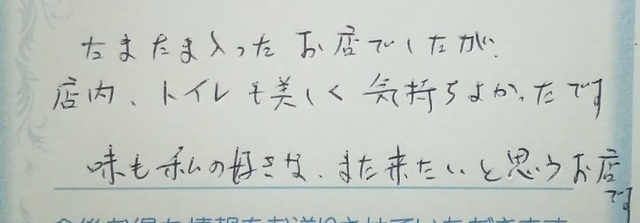 たまたま入ったお店でしたが、
店内、トイレも美しく気持ちよかったです
味も私の好きな、また来たいと思うお店です